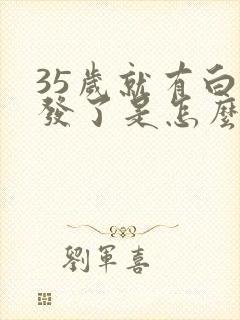 35歲就有白
發了是怎麼
劉軍喜